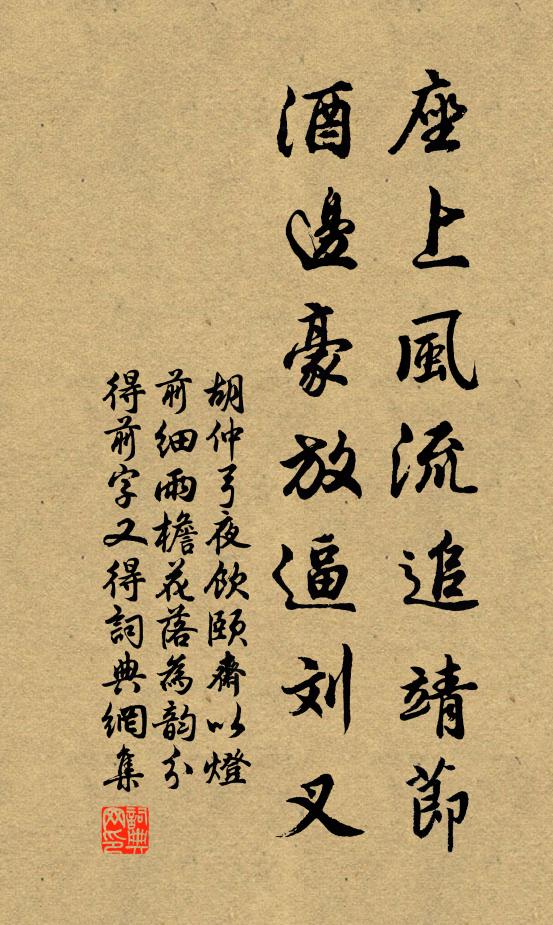 座上風流追靖節
酒邊豪放逼刘叉
胡仲弓夜飲頤齋以燈
前細雨檐花落為韵分
得前字又得詞典網集
詞典網印